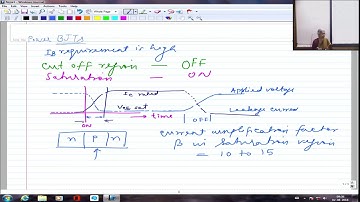 Power BJTs
IB requirement is high
Cut off region — OFF
Saturation — ON
IC rated
Applied voltage
VCE sat
Leakage current
time
ON
OFF
n P n
current amplification factor
β in saturation region
= 10 to 15